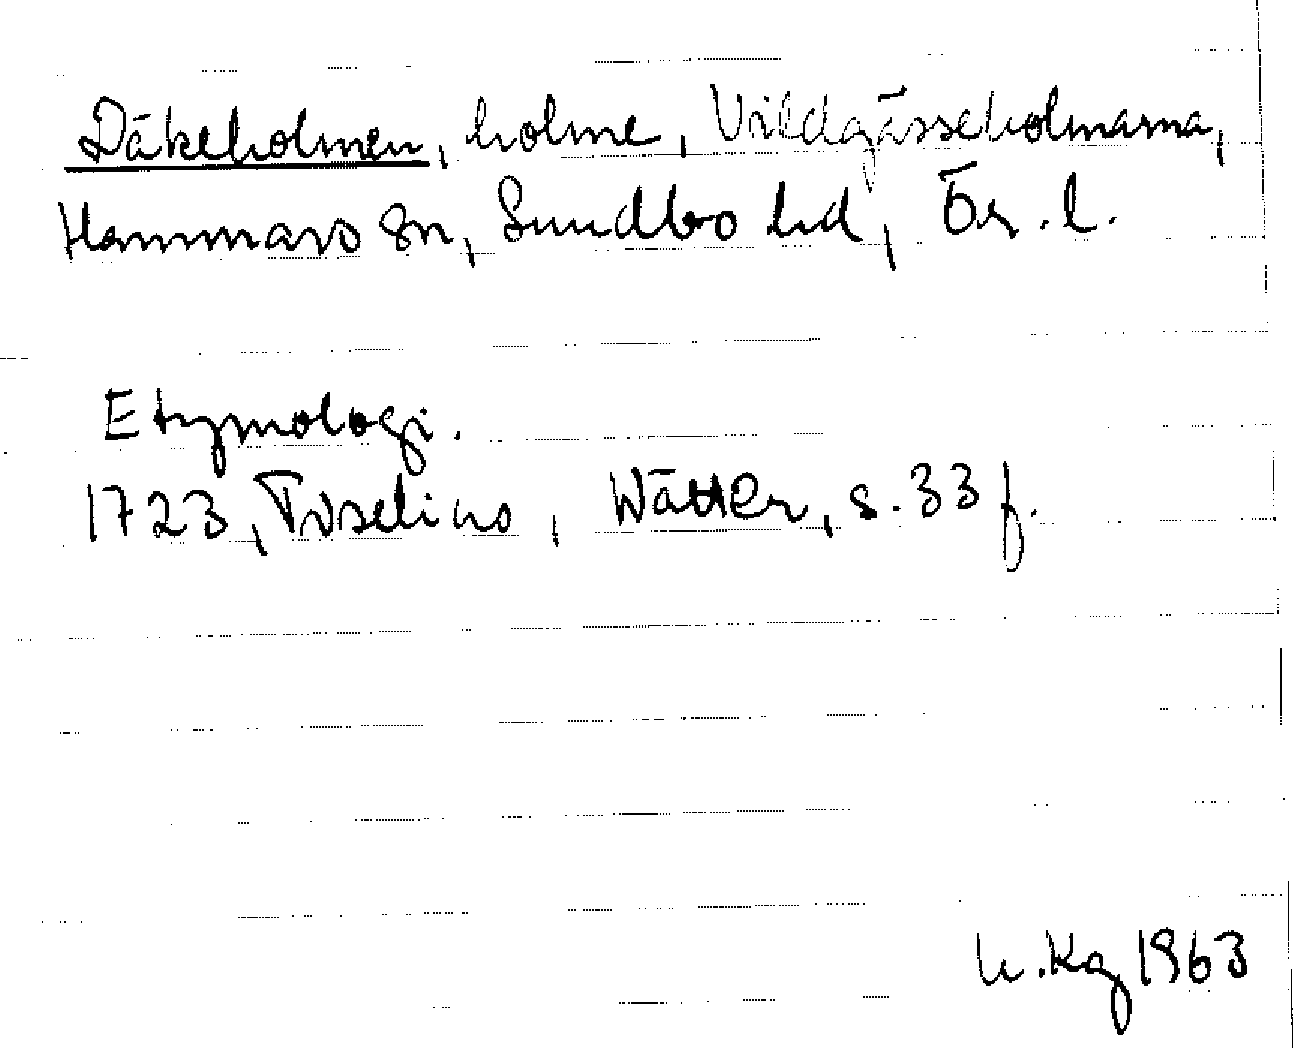 Däkeholmen, holme, Vildgässeholmarna,
Hammars sn, Sundbo hd, Ör. l.
Etymologi.
1723, Tiselius, Wätter, s. 33 f.
Kg 1963